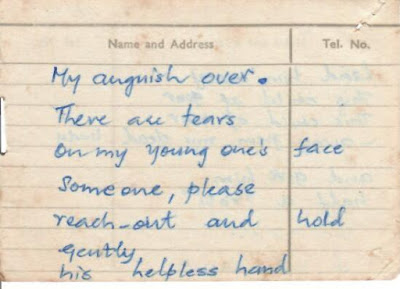 Name and Address Tel. No.
My anguish over.
There are tears
on my young one's face
Someone, please
reach-out and hold
gently
his helpless hand